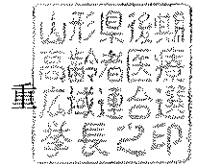 山形県後期
高齢者医療
広域連合選
挙長之印
重